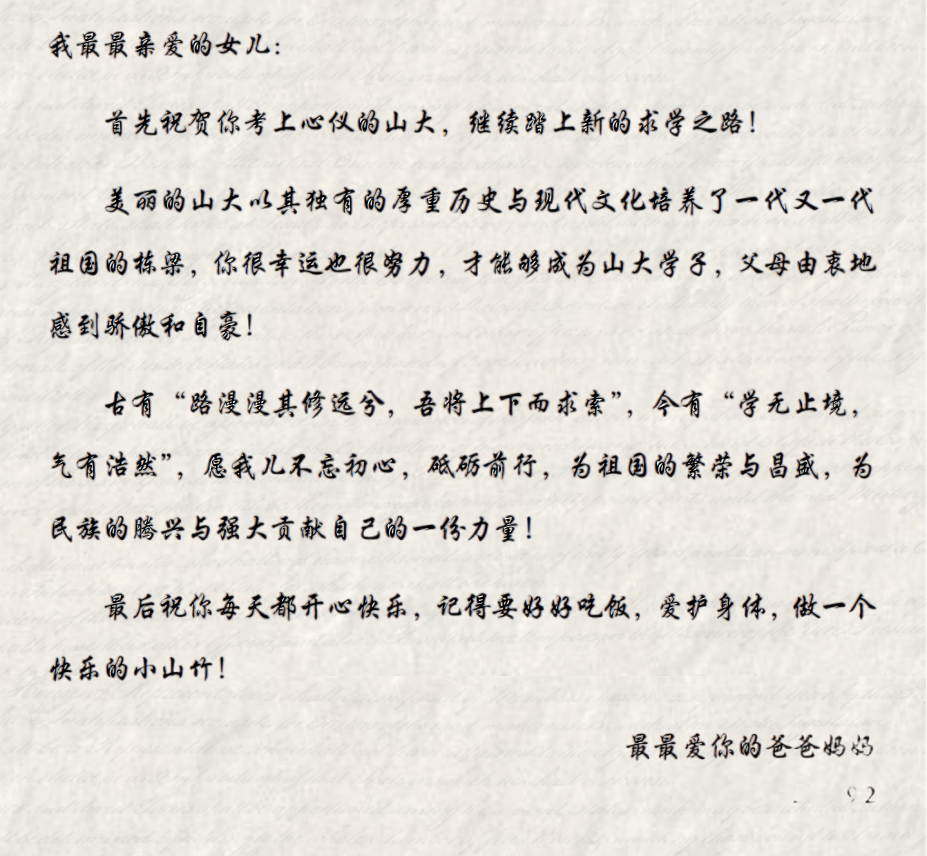 我最最亲爱的女儿：
首先祝贺你考上心仪的山大，继续踏上新的求学之路！
美丽的山大以其独有的厚重历史与现代文化培养了一代又一代
祖国的栋梁，你很幸运也很努力，才能够成为山大学子，父母由衷地
感到骄傲和自豪！
古有“路漫漫其修远兮，吾将上下而求索”，今有“学无止境，
气有浩然”，愿我儿不忘初心，砥砺前行，为祖国的繁荣与昌盛，为
民族的腾兴与强大贡献自己的一份力量！
最后祝你每天都开心快乐，记得要好好吃饭，爱护身体，做一个
快乐的小山竹！
最最爱你的爸爸妈妈
92